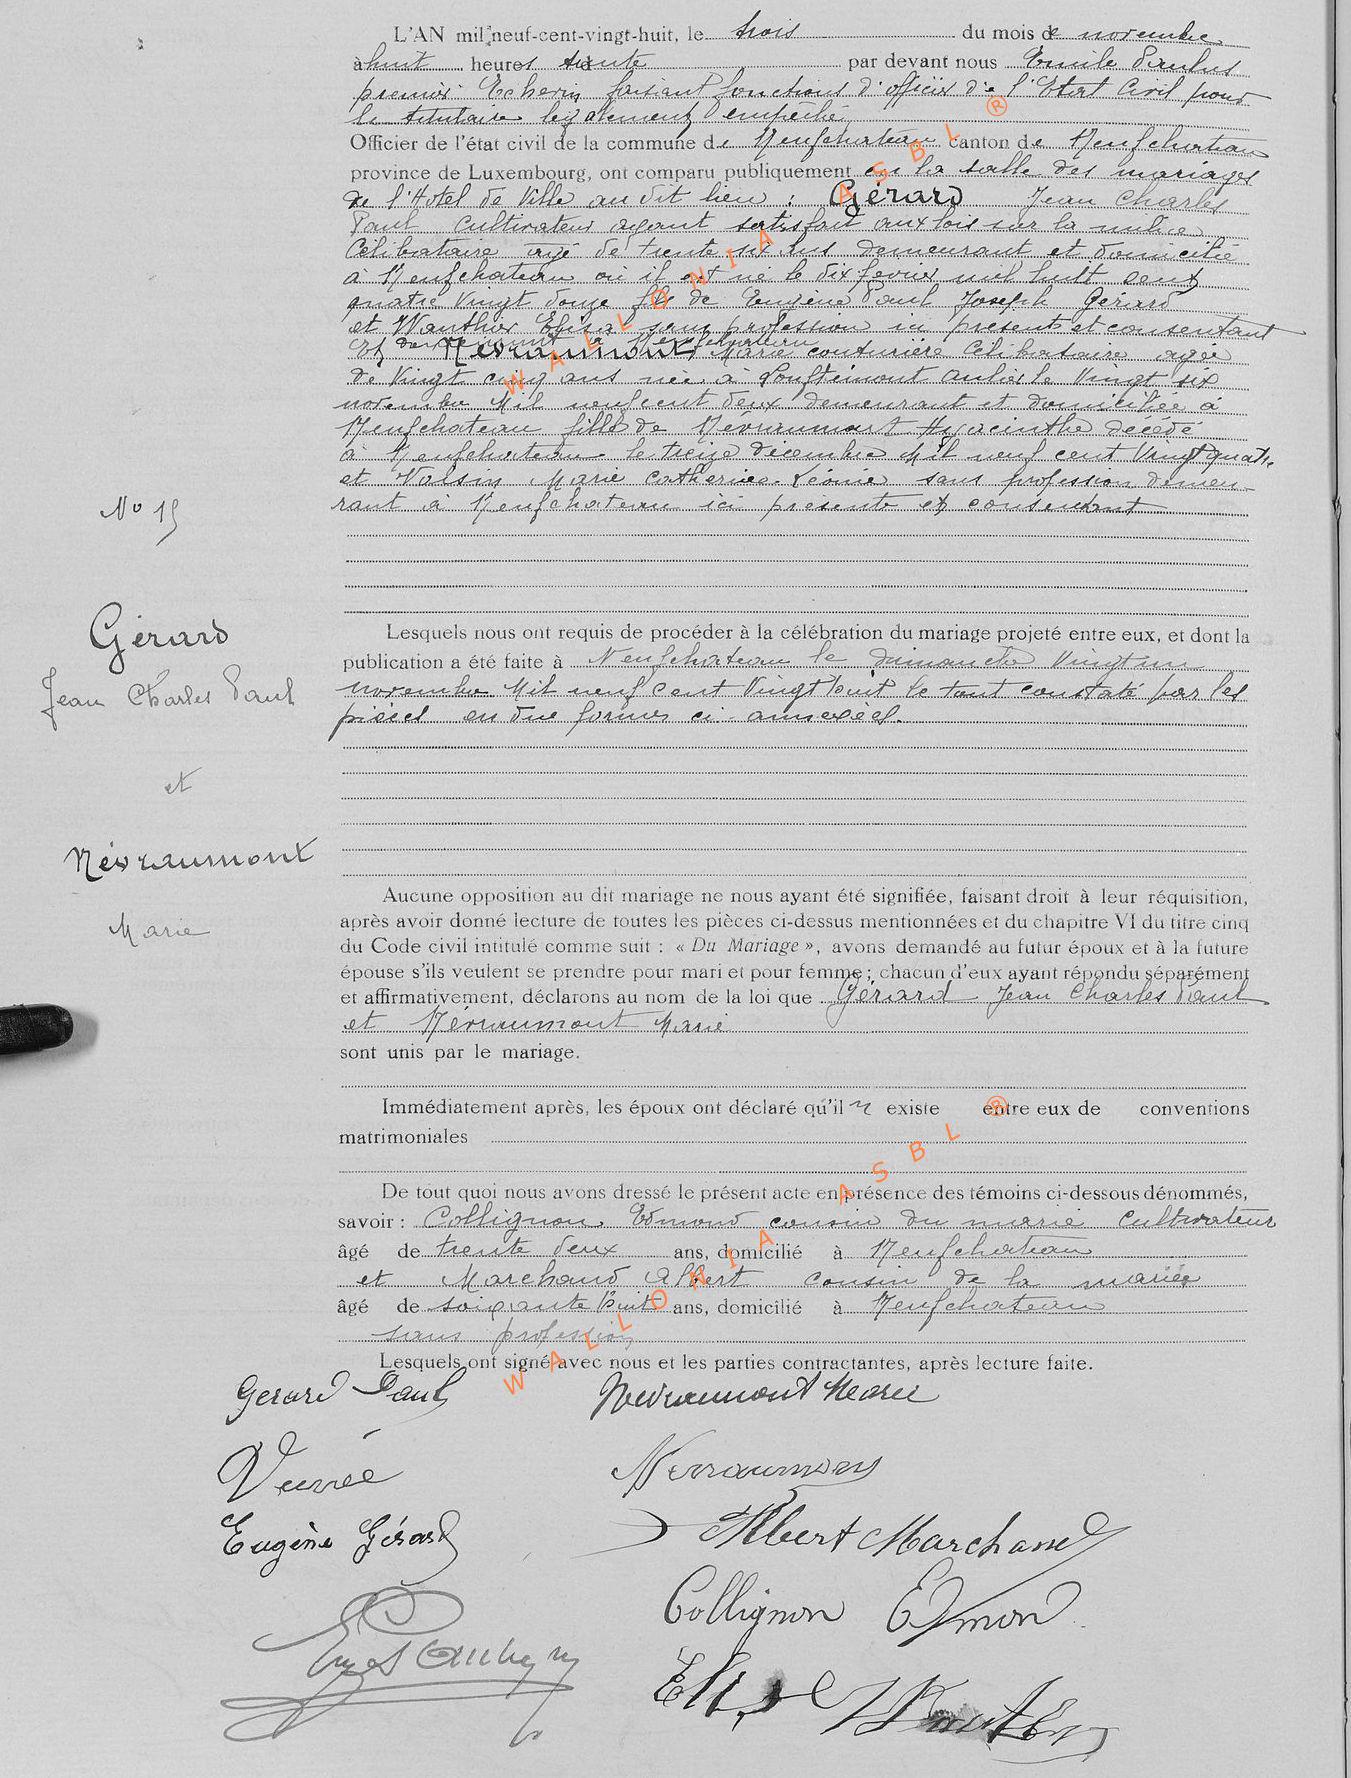 L'AN mil neuf-cent-vingt-huit, le trois du mois de novembre
à huit heures trente par devant nous Emile Paulus
premier Echevin faisant fonctions d'officier de l'Etat Civil pour
le titulaire legalement empêché
Officier de l'état civil de la commune de Neufchateau canton de Neufchateau
province de Luxembourg, ont comparu publiquement en la salle des mariages
de l'Hotel de Ville au dit lieu : Gérard Jean Charles
Paul Cultivateur ayant satisfait aux lois sur la milice
Célibataire agé de trente six ans demeurant et domicilié
à Neufchateau où il est né le dix fevrier mil huit cent
quatre vingt douze fils de Eugène Paul Joseph Gerard
et Wauthier Elisa sans profession ici présent et consentant
demeurant à Neufchateau
Et Nevraumont Marie couturière Célibataire agée
de Vingt cinq ans née à Anlier le Vingt six
novembre Mil neuf cent deux demeurant et domiciliée à
Neufchateau fille de Névraumont Hyacinthe decédé
à Neufchateau le treize décembre Mil neuf cent Vingt quatre
et Marie Catherine Léonie sans profession demeu-
rant à Neufchateau ici présente et consentant
No 15
Gérard
Jean Charles Paul
et
Névraumont
Marie
Lesquels nous ont requis de procéder à la célébration du mariage projeté entre eux, et dont la
publication a été faite à Neufchateau le dimanche Vingt un
novembre Mil neuf Cent Vingt huit le tout constaté par les
pièces en due formes ci-annexées.
Aucune opposition au dit mariage ne nous ayant été signifiée, faisant droit à leur réquisition,
après avoir donné lecture de toutes les pièces ci-dessus mentionnées et du chapitre VI du titre cinq
du Code civil intitulé comme suit : « Du Mariage », avons demandé au futur époux et à la future
épouse s'ils veulent se prendre pour mari et pour femme ; chacun d'eux ayant répondu séparément
et affirmativement, déclarons au nom de la loi que Gérard Jean Charles Paul
et Névraumont Marie
sont unis par le mariage.
Immédiatement après, les époux ont déclaré qu'il n existe entre eux de conventions
matrimoniales
De tout quoi nous avons dressé le présent acte en présence des témoins ci-dessous dénommés,
savoir : Collignon Edmond cousin du marié Cultivateur
âgé de trente deux ans, domicilié à Neufchateau
et Marchand Albert cousin de la mariée
âgé de soixante huit ans, domicilié à Neufchateau
sans profession
Lesquels ont signé avec nous et les parties contractantes, après lecture faite.
Gerard Paul Nevraumont Marie
Eugène Gérard Albert Marchand
Collignon Edmond
WALLONIA ASBL ®
WALLONIA ASBL ®